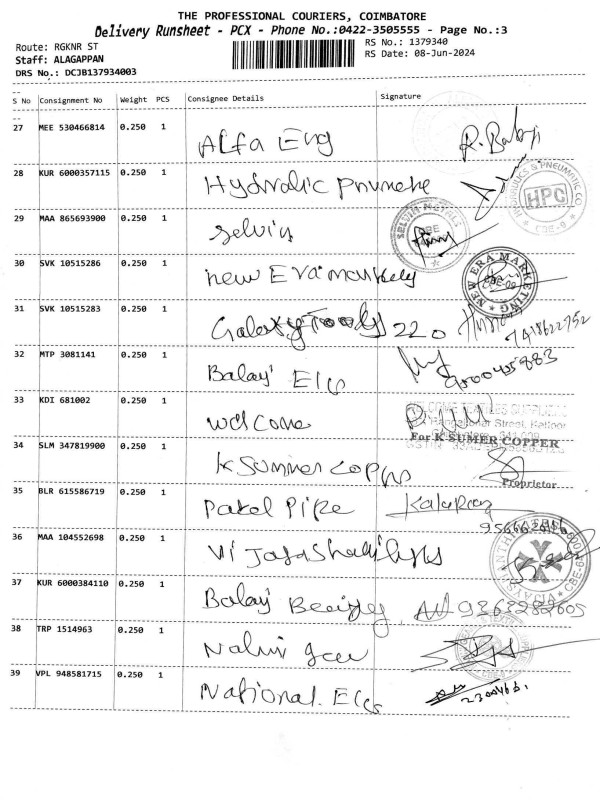 THE PROFESSIONAL COURIERS, COIMBATORE
Delivery Runsheet - PCX - Phone No.:0422-3505555 - Page No.:3
Route: RGKNR ST
RS No.: 1379340
Staff: ALAGAPPAN
RS Date: 08-Jun-2024
DRS No.: DCJB137934003
S No Consignment No Weight PCS Consignee Details Signature
27 MEE 530466814 0.250 1 Alfa Eng R. Babuji
28 KUR 6000357115 0.250 1 Hydralic
HYDRAULICS & PNEUMATIC CO
HPC
CBE-9
29 MAA 865693900 0.250 1 Selvin
SELVIN METALS
CBE
30 SVK 10515286 0.250 1 new Era
NEW ERA MARKETING
CBE-09
31 SVK 10515283 0.250 1 Galaxy Tools 220
32 MTP 3081141 0.250 1 Balaji Elcs
33 KDI 681002 0.250 1 welcome
34 SLM 347819900 0.250 1 K Summer
For K SUMER COPPER
Proprietor
35 BLR 615586719 0.250 1 Patel Pipe
36 MAA 104552698 0.250 1
37 KUR 6000384110 0.250 1 Balaji 9363282605
38 TRP 1514963 0.250 1
39 VPL 948581715 0.250 1 National Elcs